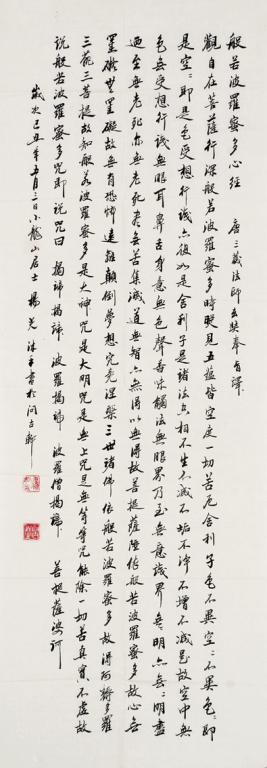 般若波羅蜜多心經 唐三藏法師玄奘奉旨譯
觀自在菩薩行深般若波羅蜜多時照見五蘊皆空度一切苦厄舍利子色不異空空不異色色即
是空空即是色受想行識亦復如是舍利子是諸法空相不生不滅不垢不淨不增不減是故空中無
色無受想行識無眼耳鼻舌身意無色聲香味觸法無眼界乃至無意識界無無明亦無無明盡
乃至無老死亦無老死盡無苦集滅道無智亦無得以無所得故菩提薩埵依般若波羅蜜多故心無
罣礙無罣礙故無有恐怖遠離顛倒夢想究竟涅槃三世諸佛依般若波羅蜜多故得阿耨多羅
三藐三菩提故知般若波羅蜜多是大神咒是大明咒是無上咒是無等等咒能除一切苦真實不虛故
說般若波羅蜜多咒即說咒曰 揭諦揭諦 波羅揭諦 波羅僧揭諦 菩提薩婆訶
歲次己丑年五月三日小龍山居士楊光沐手書於問古軒